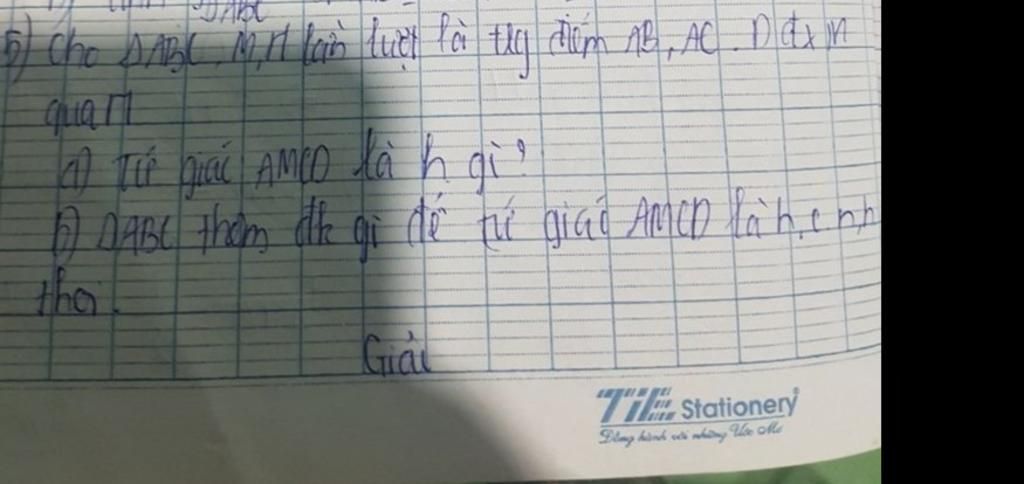 ΔABC
5) Cho ΔABC, M, N lần lượt là trg điểm AB, AC. D đx M
qua N
a) Tứ giác AMCD là h gì?
b) ΔABC thêm đk gì để tứ giác AMCD là h.c.n, h
thoi.
Giải
TiE Stationery
Đồng hành với những Ước Mơ